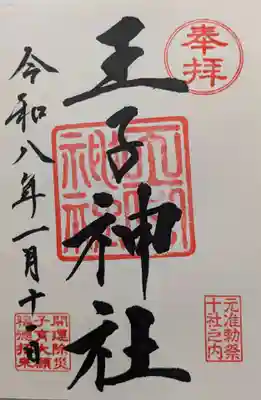 奉拝
王子神社
元准勅祭
十社之内
令和八年一月十一日
開運除災
子育大願
福徳招来